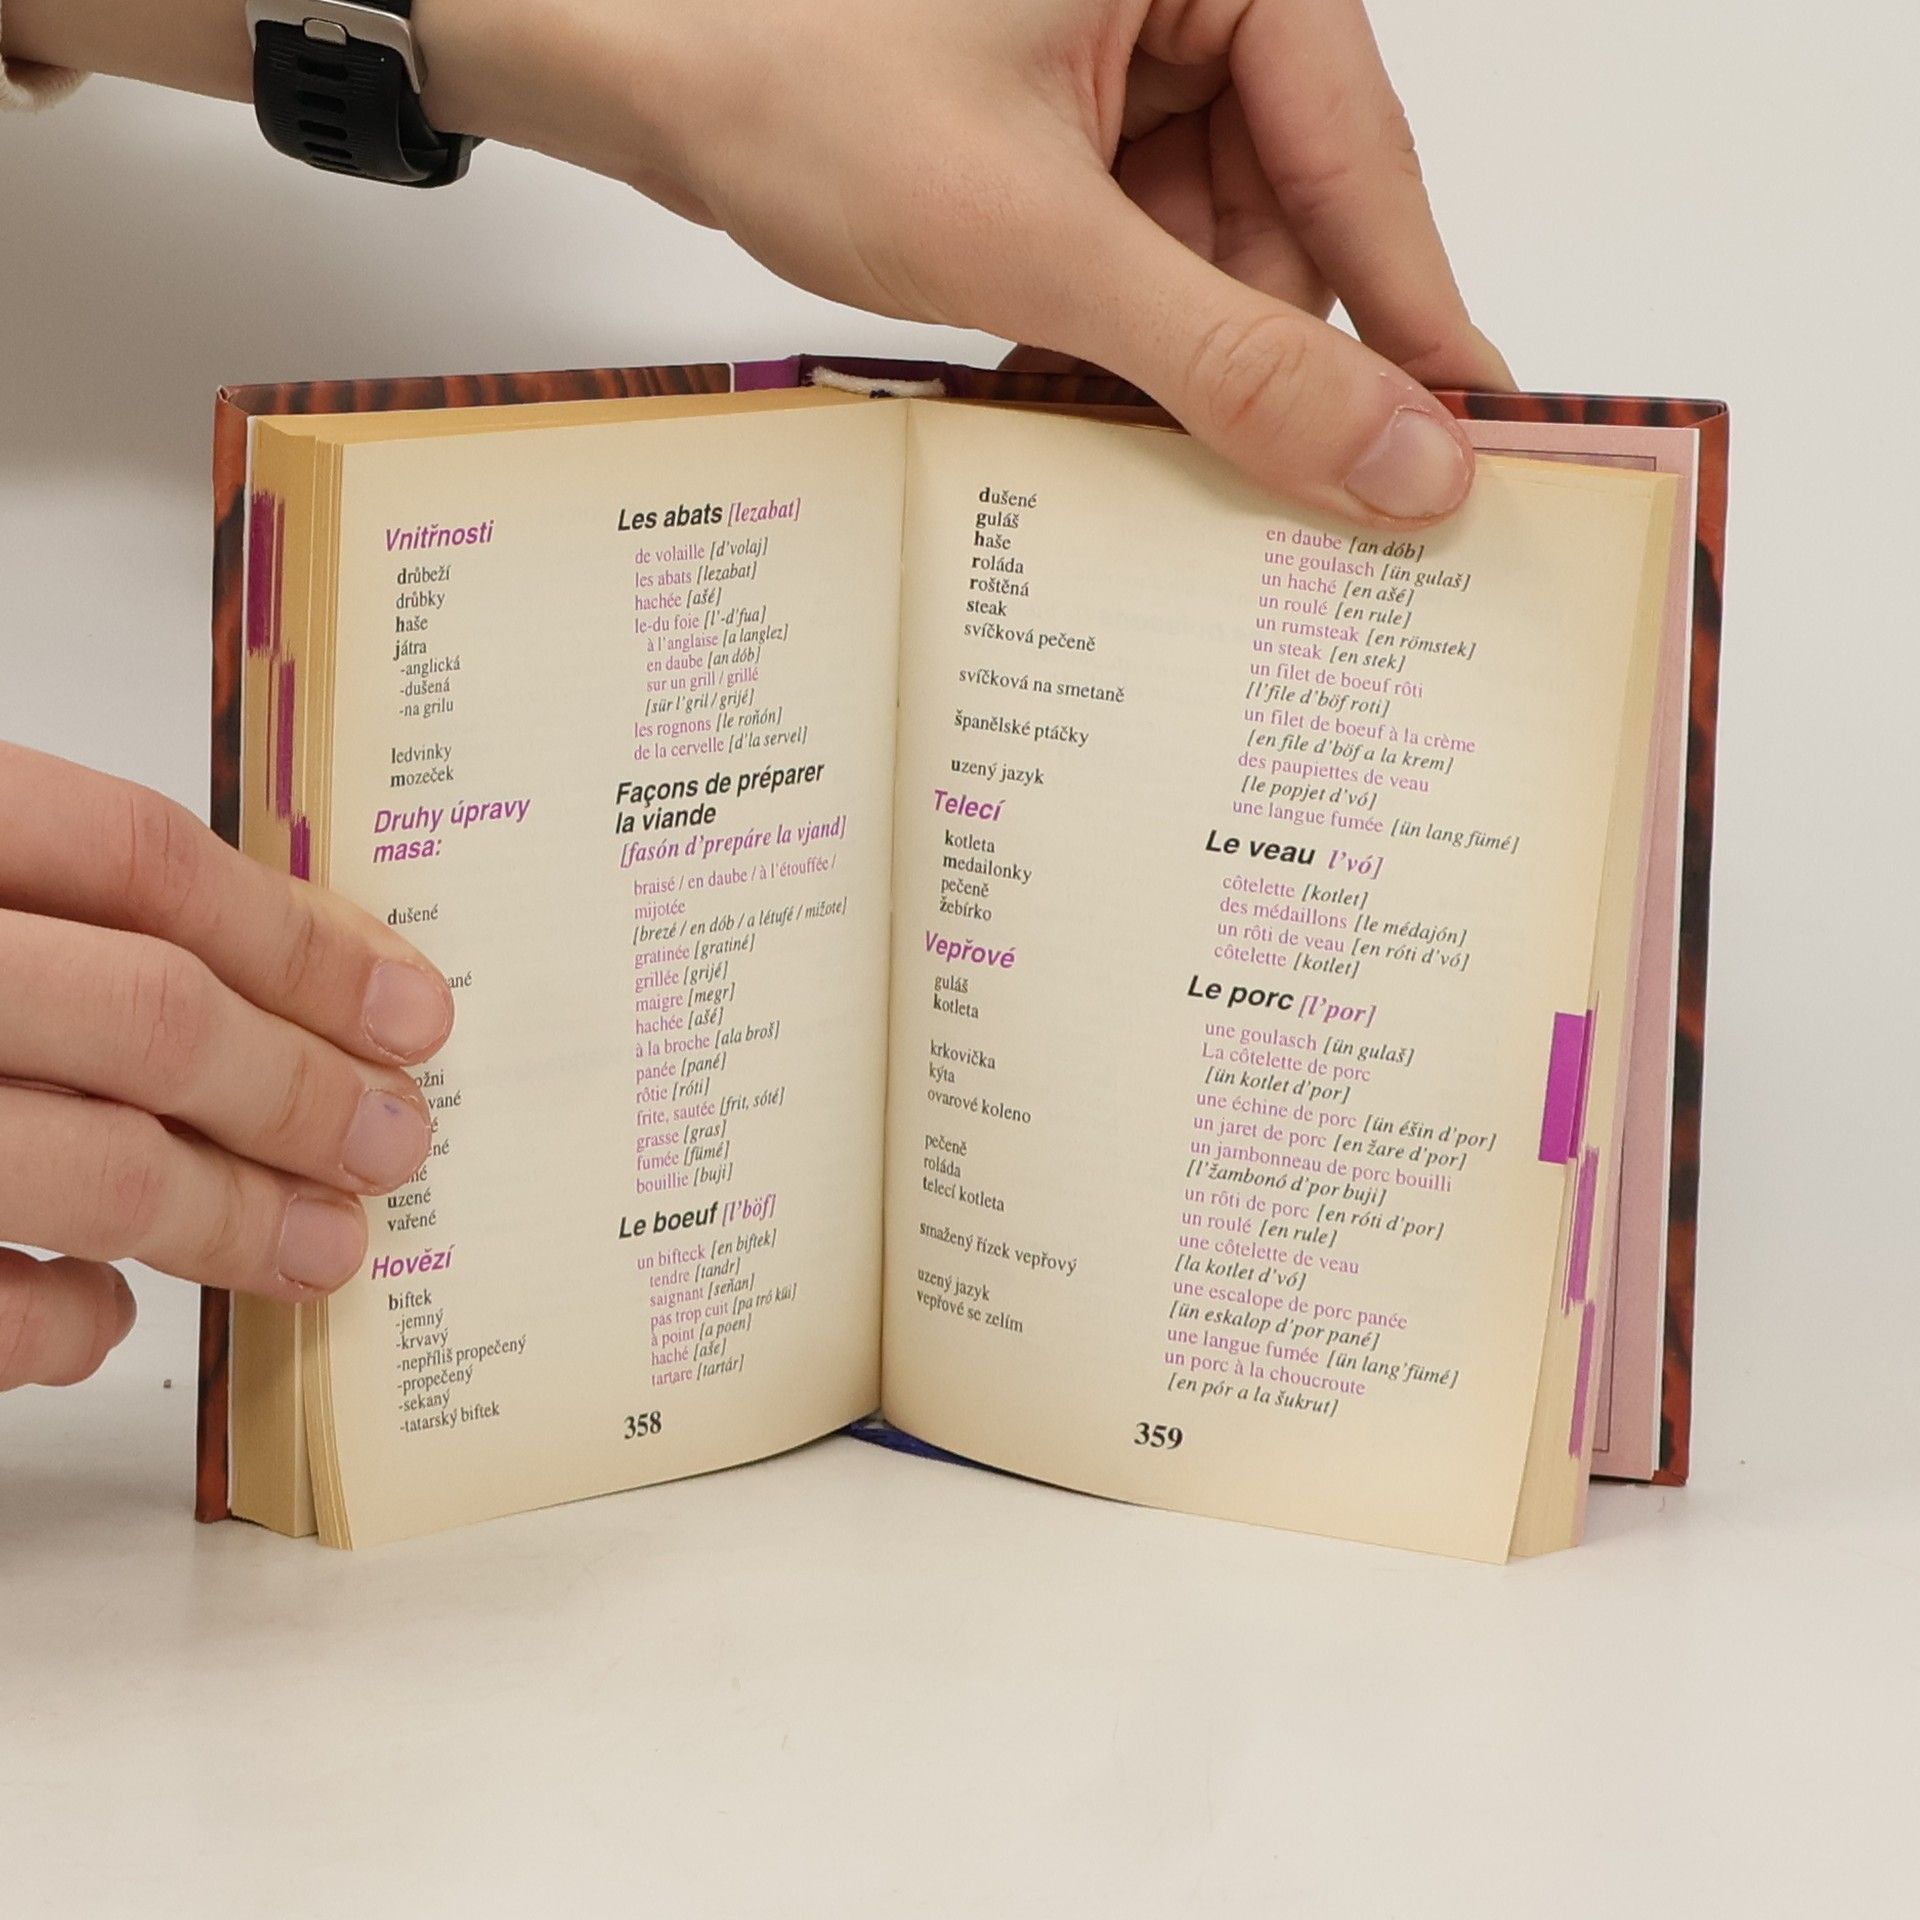 Vnitřnosti
drůbeží
drůbky
haše
játra
-anglická
-dušená
-na grilu
ledvinky
mozeček
Druhy úpravy
masa:
dušené
uzené
vařené
Hovězí
biftek
-jemný
-krvavý
-nepříliš propečený
-propečený
-sekaný
-tatarský biftek
Les abats [lezabat]
de volaille [d'volaj]
les abats [lezabat]
hachée [ašé]
le-du foie [l'-d'fua]
à l'anglaise [a langlez]
en daube [an dób]
sur un grill / grillé
[sür l'gril / grijé]
les rognons [le roňón]
de la cervelle [d'la servel]
Façons de préparer
la viande
[fasón d'prepáre la vjand]
braisé / en daube / à l'étouffée /
mijotée
[brezé / en dób / a létufé / mižote]
gratinée [gratiné]
grillée [grijé]
maigre [megr]
hachée [ašé]
à la broche [ala broš]
panée [pané]
rôtie [róti]
frite, sautée [frit, sóté]
grasse [gras]
fumée [fümé]
bouillie [buji]
Le boeuf [l'böf]
un bifteck [en biftek]
tendre [tandr]
saignant [seňan]
pas trop cuit [pa tró küi]
à point [a poen]
haché [aše]
tartare [tartár]
358
dušené
guláš
haše
roláda
roštěná
steak
svíčková pečeně
svíčková na smetaně
španělské ptáčky
uzený jazyk
Telecí
kotleta
medailonky
pečeně
žebírko
Vepřové
guláš
kotleta
krkovička
kýta
ovarové koleno
pečeně
roláda
telecí kotleta
smažený řízek vepřový
uzený jazyk
vepřové se zelím
en daube [an dób]
une goulasch [ün gulaš]
un haché [en ašé]
un roulé [en rule]
un rumsteak [en römstek]
un steak [en stek]
un filet de boeuf rôti
[l'file d'böf roti]
un filet de boeuf à la crème
[en file d'böf a la krem]
des paupiettes de veau
[le popjet d'vó]
une langue fumée [ün lang fümé]
Le veau l'vó]
côtelette [kotlet]
des médaillons [le médajón]
un rôti de veau [en róti d'vó]
côtelette [kotlet]
Le porc [l'por]
une goulasch [ün gulaš]
La côtelette de porc
[ün kotlet d'por]
une échine de porc [ün éšin d'por]
un jaret de porc [en žare d'por]
un jambonneau de porc bouilli
[l'žambonó d'por buji]
un rôti de porc [en róti d'por]
un roulé [en rule]
une côtelette de veau
[la kotlet d'vó]
une escalope de porc panée
[ün eskalop d'por pané]
une langue fumée [ün lang'fümé]
un porc à la choucroute
[en pór a la šukrut]
359